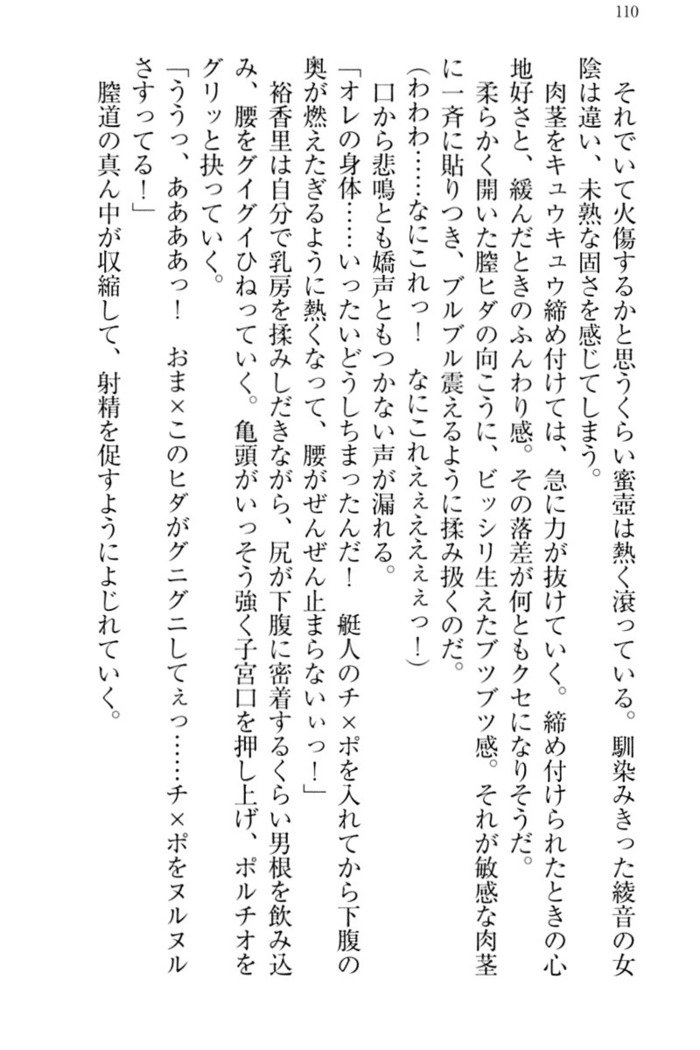 110
それでいて火傷するかと思うくらい蜜壺は熱く滾っている。馴染みきった綾音の女
陰は違い、未熟な固さを感じてしまう。
肉茎をキュウキュウ締め付けては、急に力が抜けていく。締め付けられたときの心
地好さと、緩んだときのふんわり感。その落差が何ともクセになりそうだ。
柔らかく開いた膣ヒダの向こうに、ビッシリ生えたブツブツ感。それが敏感な肉茎
に一斉に貼りつき、ブルブル震えるように揉み扱くのだ。
(わわわ……なにこれっ!　なにこれえぇえぇぇっ!)
口から悲鳴とも嬌声ともつかない声が漏れる。
「オレの身体……いったいどうしちまったんだ!　艇人のチ×ポを入れてから下腹の
奥が燃えたぎるように熱くなって、腰がぜんぜん止まらないぃっ!」
裕香里は自分で乳房を揉みしだきながら、尻が下腹に密着するくらい男根を飲み込
み、腰をグイグイひねっていく。亀頭がいっそう強く子宮口を押し上げ、ポルチオを
グリッと抉っていく。
「ううっ、ああああっ!　おま×このヒダがグニグニしてぇっ……チ×ポをヌルヌル
さすってる!」
膣道の真ん中が収縮して、射精を促すようによじれていく。